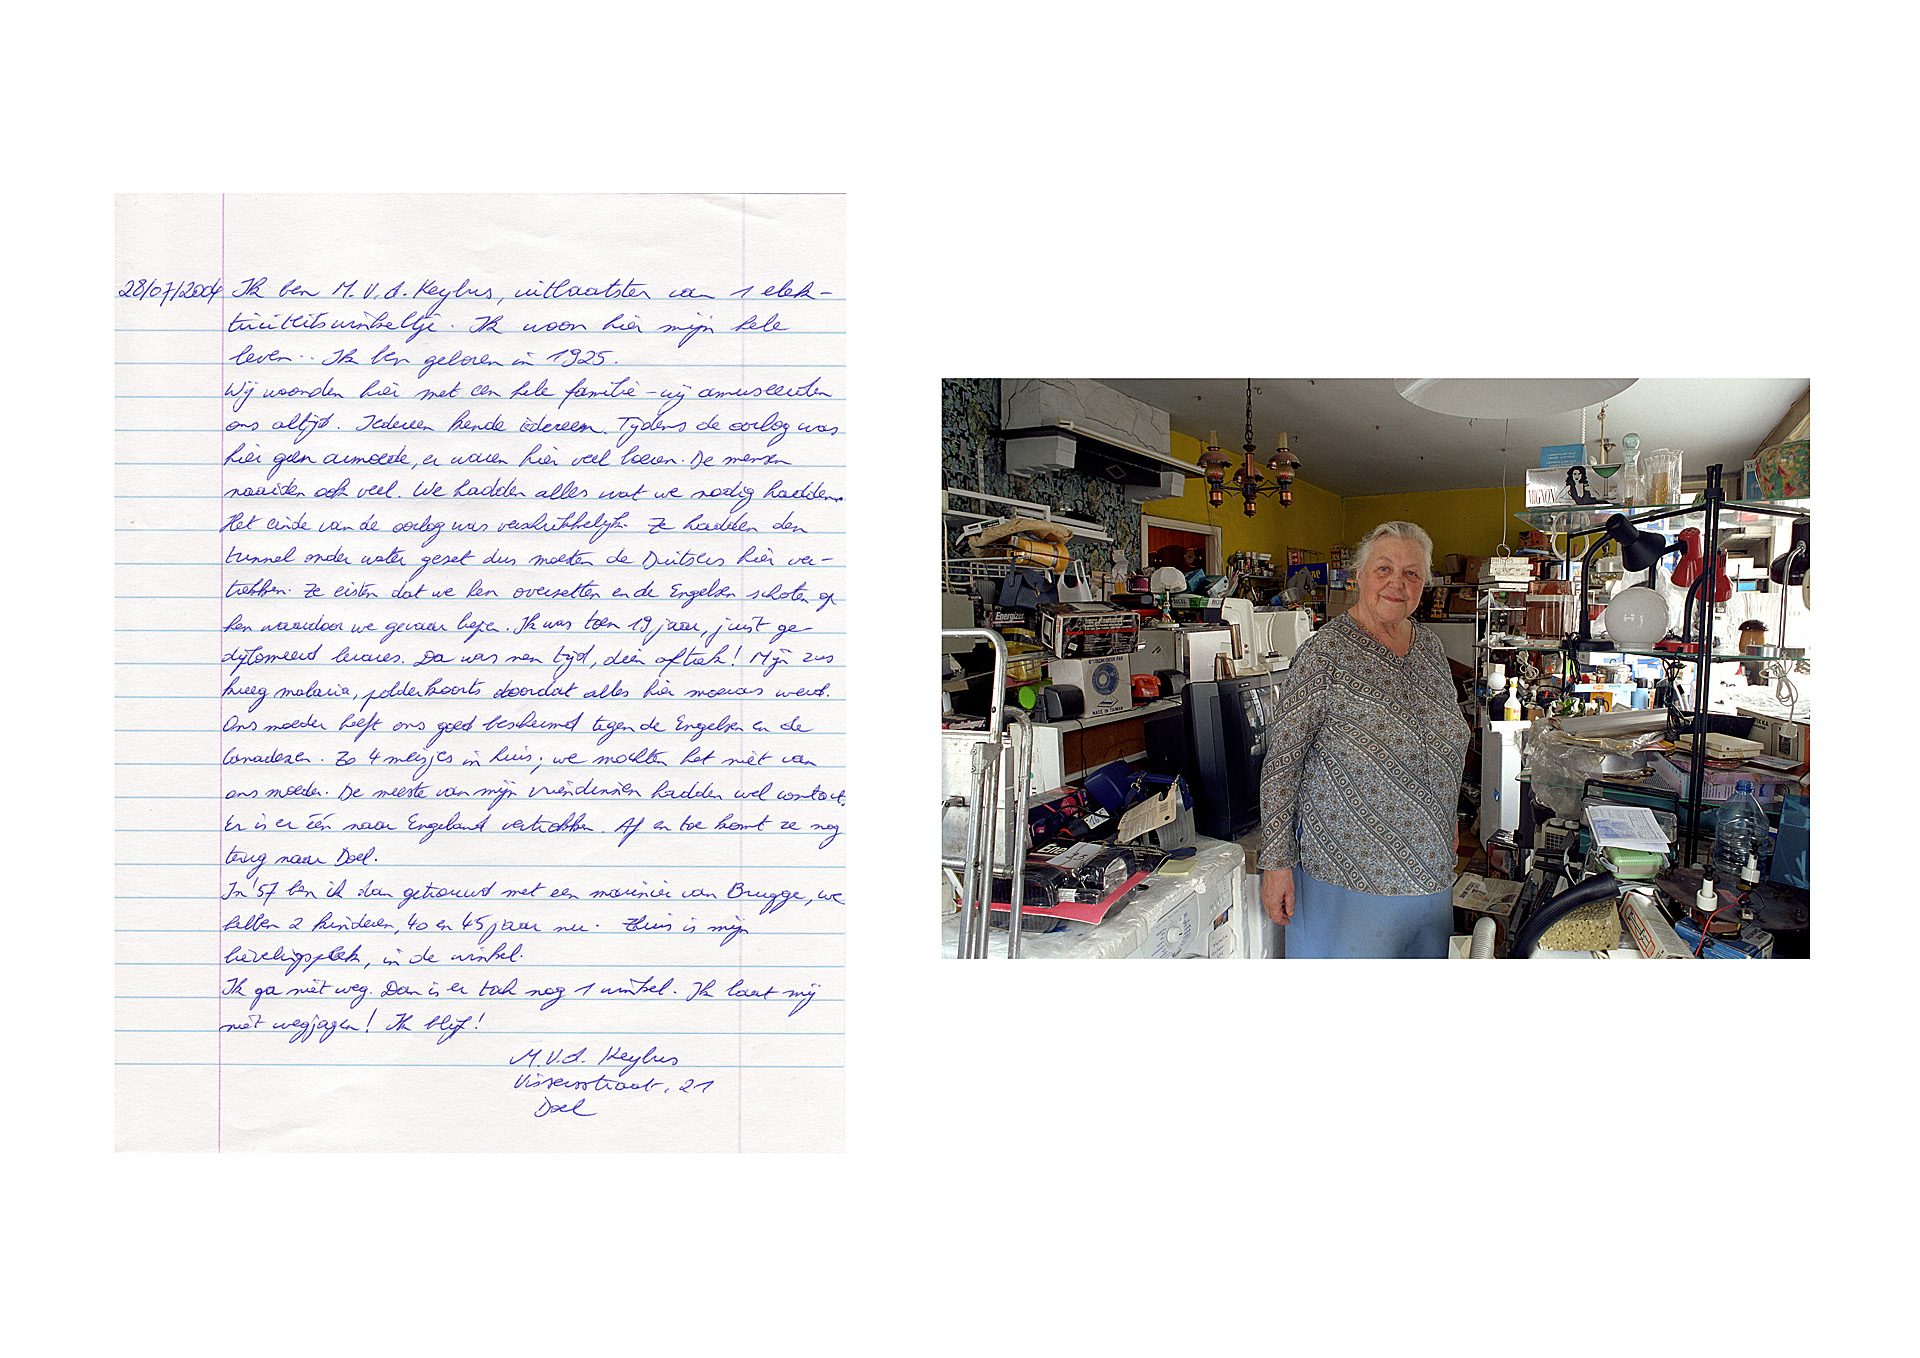 28/07/2004 Ik ben M. V. d. Keybus, uitbaatster van 1 elek-
triciteitswinkeltje. Ik woon hier mijn hele
leven.. Ik ben geboren in 1925.
Wij woonden hier met een hele familie - wij amuseerden
ons altijd. Iedereen kende iedereen. Tijdens de oorlog was
hier geen armoede, er waren hier veel boeren. De mensen
naaiden ook veel. We hadden alles wat we nodig hadden.
Het einde van de oorlog was verschrikkelijk. Ze hadden den
tunnel onder water gezet dus moesten de Duitsers hier ver-
trekken. Ze eisten dat we hen overzetten en de Engelsen schoten op
hen waardoor we gevaar liepen. Ik was toen 19 jaar, juist ge-
diplomeerd lerares. Da was nen tijd, dien aftrok! Mijn zus
kreeg malaria, polderkoorts doordat alles hier moeras werd.
Ons moeder heeft ons goed beschermd tegen de Engelsen en de
Canadezen. Zo 4 meisjes in huis; we mochten het niet van
ons moeder. De meeste van mijn vriendinnen hadden wel contact.
Er is er één naar Engeland vertrokken. Af en toe komt ze nog
terug naar Doel.
In '57 ben ik dan getrouwd met een marinier van Brugge, we
hebben 2 kinderen, 40 en 45 jaar nu. Thuis is mijn
lievelingsplek, in de winkel.
Ik ga niet weg. Dan is er toch nog 1 winkel. Ik laat mij
niet wegjagen! Ik blijf!
M. V. d. Keybus
Vissersstraat, 21
Doel
Energizer
MADE IN TAIWAN
MIGNON